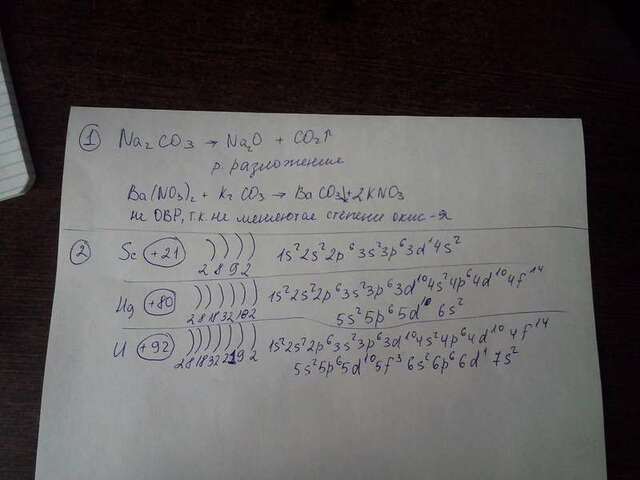 ① Na₂CO₃ → Na₂O + CO₂↑
р. разложения
Ba(NO₃)₂ + K₂CO₃ → BaCO₃↓ + 2KNO₃
не ОВР, т.к. не меняются степени окис-я
② Sc +21 ) ) ) ) 2 8 9 2 1s²2s²2p⁶3s²3p⁶3d¹4s²
Hg +80 ) ) ) ) ) ) 2 8 18 32 18 2 1s²2s²2p⁶3s²3p⁶3d¹⁰4s²4p⁶4d¹⁰4f¹⁴
5s²5p⁶5d¹⁰6s²
U +92 ) ) ) ) ) ) ) 2 8 18 32 21 9 2 1s²2s²2p⁶3s²3p⁶3d¹⁰4s²4p⁶4d¹⁰4f¹⁴
5s²5p⁶5d¹⁰5f³6s²6p⁶6d¹7s²